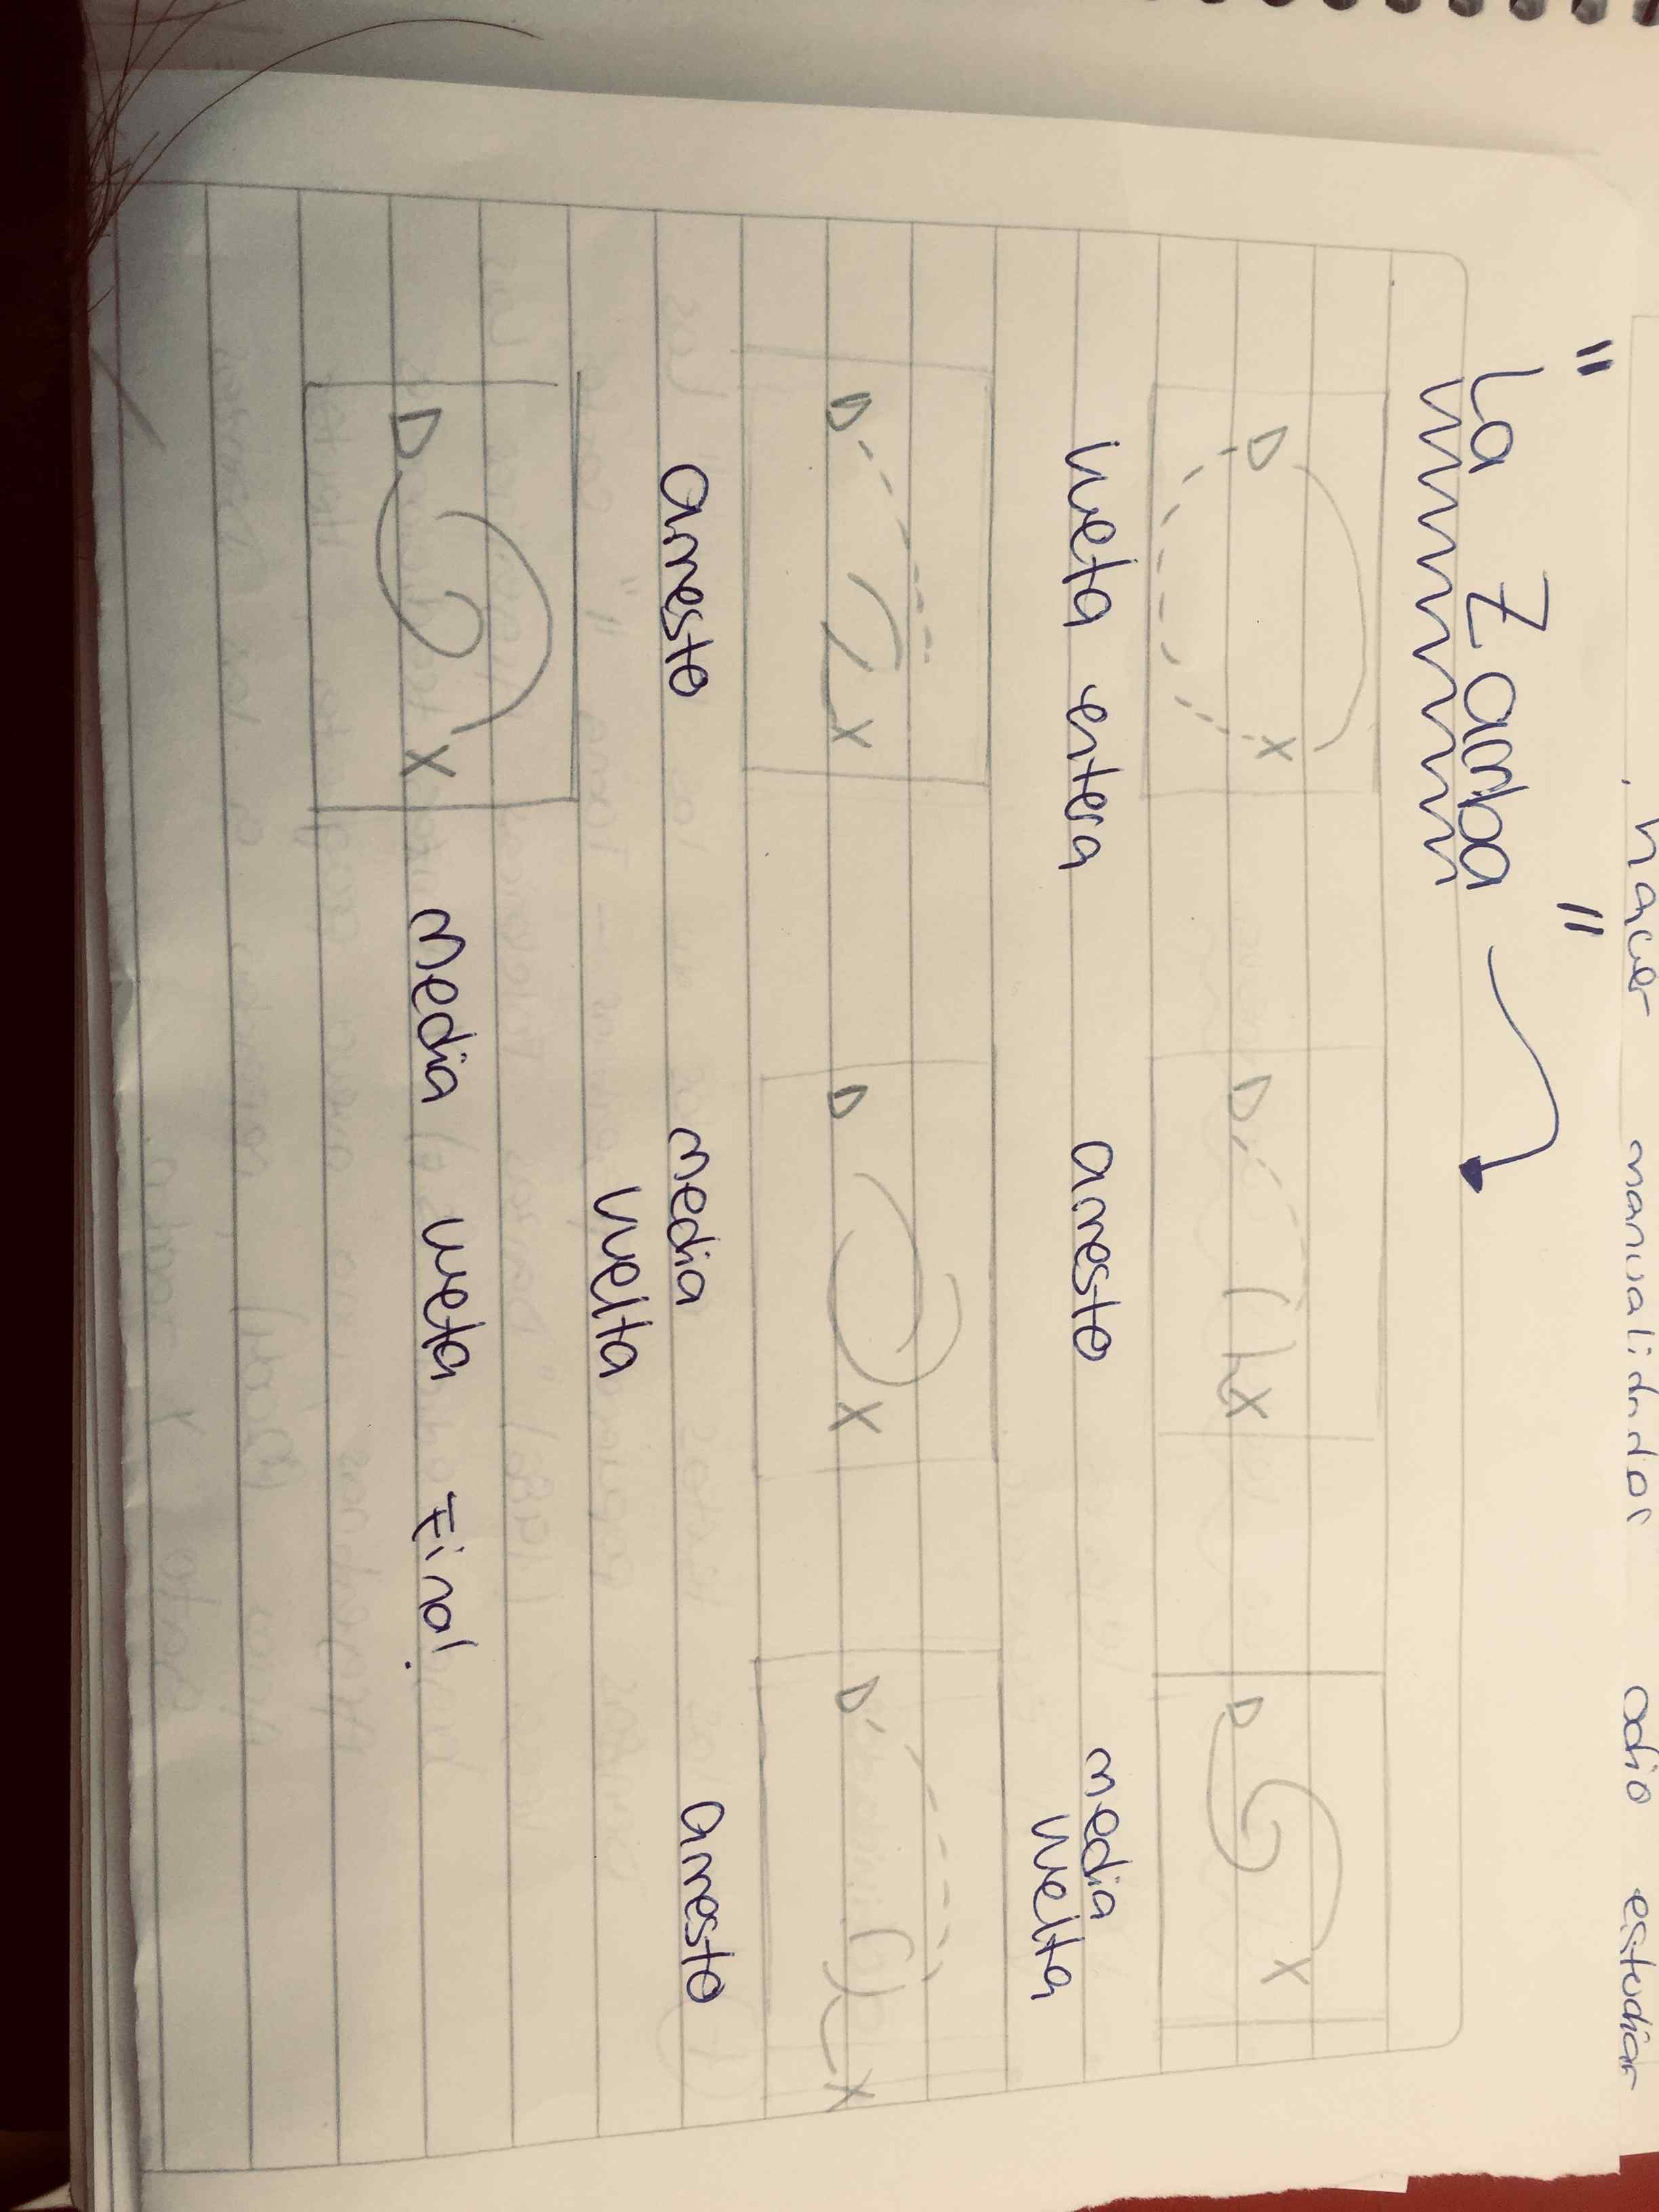 hacer manualidades odio estudiar
"La Zamba"
vuelta entera arresto media
vuelta
arresto media arresto
vuelta
media vuelta Final.